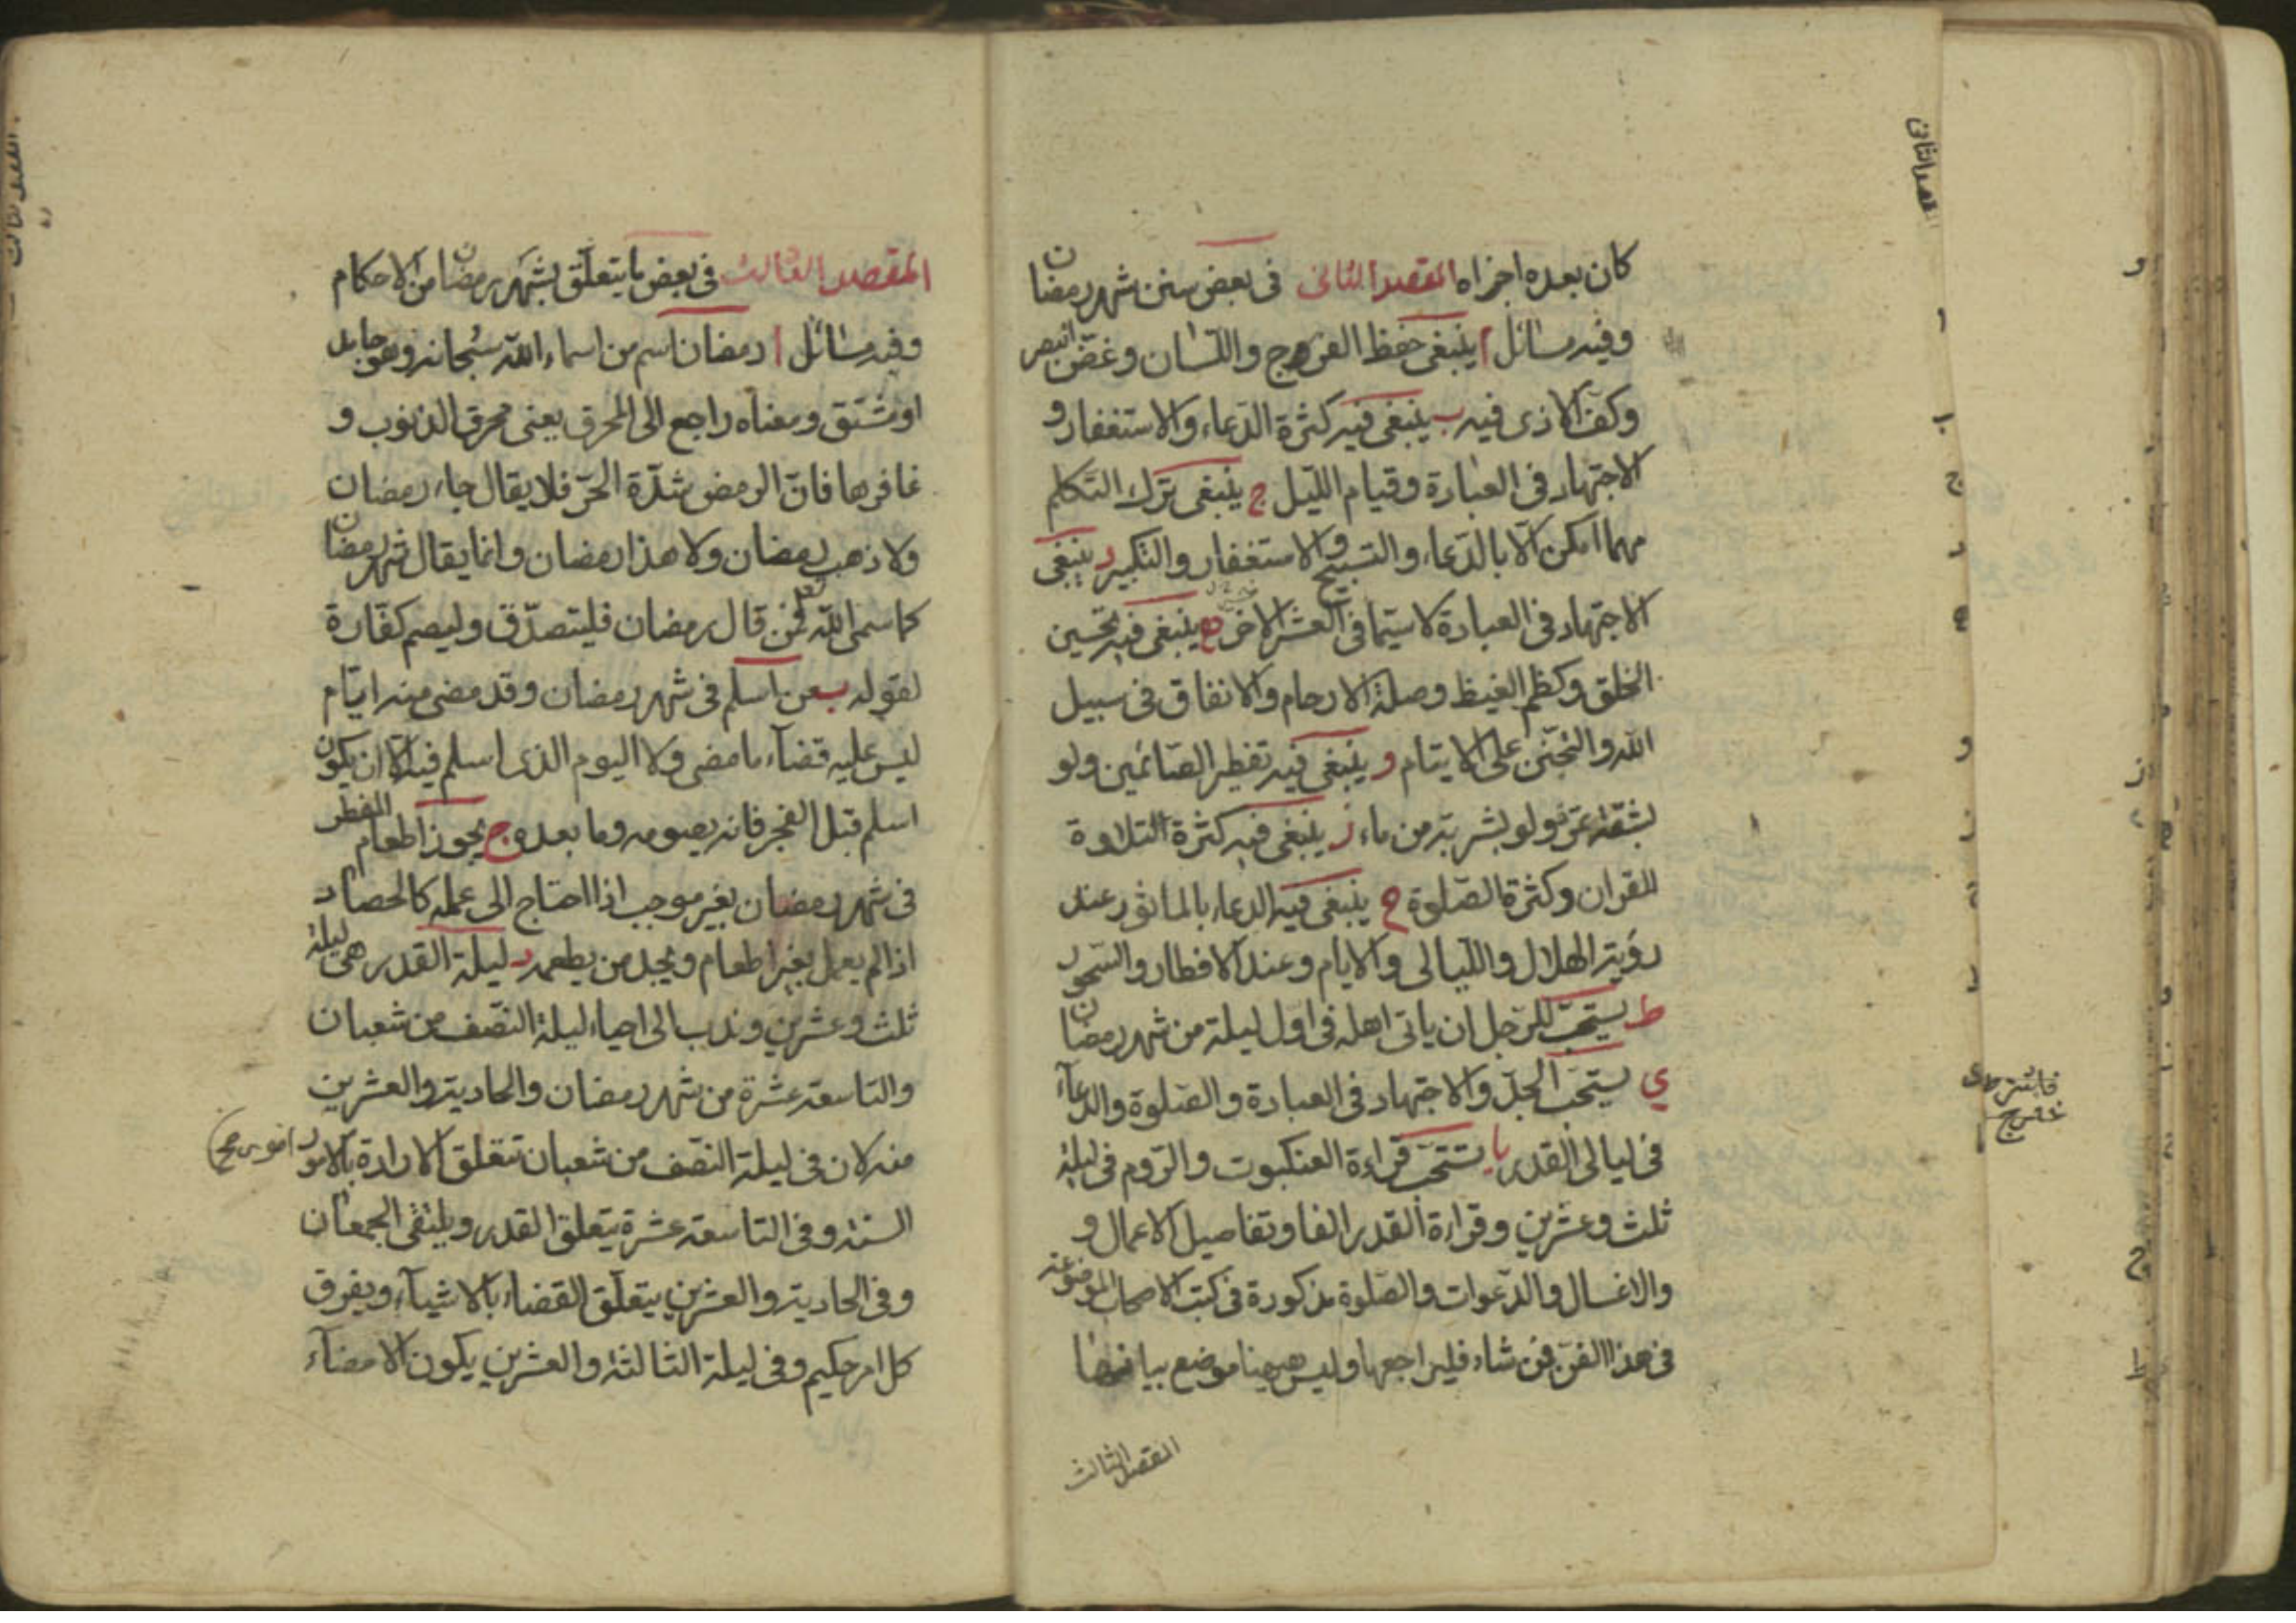 كان بعده اجزاه المقصد الثانى فى بعض سنن شهر رمضان
وفيه مسائل ا ينبغى حفظ الفروج واللسان وغضّ البصر
وكفّ الاذى فيه ب ينبغى فيه كثرة الدعاء والاستغفار و
الاجتهاد فى العبادة وقيام الليل ج ينبغى ترك التكلم
مهما امكن الا بالدعاء والتسبيح والاستغفار والتكبير د ينبغى
الاجتهاد فى العبادة لاسيّما فى العشر الاخر ه ينبغى فيه تحسين
الخلق وكظم الغيظ وصلة الارحام والانفاق فى سبيل
الله والتحنّن على الايتام و ينبغى فيه تفطير الصائمين ولو
بشقّة تمرة ولو بشربة من ماء ز ينبغى فيه كثرة التلاوة
للقران وكثرة الصلوة ح ينبغى فيه الدعاء بالماثور عند
رؤية الهلال والليالى والايام وعند الافطار والسحور
ط يستحبّ للرجل ان ياتى اهله فى اول ليلة من شهر رمضان
ي يستحبّ الجدّ والاجتهاد فى العبادة والصلوة والدعاء
فى ليالى القدر يا يستحبّ قراءة العنكبوت والروم فى ليلة
ثلث وعشرين وقراءة القدر الفا وتفاصيل الاعمال و
والاغسال والدعوات والصلوة مذكورة فى كتب الاصحاب الموضوعة
فى هذا الفنّ فمن شاء فليراجعها وليس ههنا موضع بيانها
المقصد الثالث
المقصد الثانى
المقصد الثالث فى بعض ما يتعلّق بشهر رمضان من الاحكام
وفيه مسائل ا رمضان اسم من اسماء الله سبحانه وهو جامد
او مشتق ومعناه راجع الى المحرق يعنى محرق الذنوب و
غافرها فانّ الرمض شدّة الحرّ فلا يقال جاء رمضان
ولا ذهب رمضان ولا هذا رمضان وانما يقال شهر رمضان
كما سمى الله فمن قال رمضان فليتصدّق وليصم كفّارة
لقوله ب من اسلم فى شهر رمضان وقد مضى منه ايّام
ليس عليه قضاء ما مضى ولا اليوم الذى اسلم فيه الا ان يكون
اسلم قبل الفجر فانه يصومه وما بعده ج يجوز اطعام المفطر
فى شهر رمضان بغير موجب اذا احتاج الى عمله كالحصاد
اذا لم يعمل بغير اطعام ويجد من يطعمه د ليلة القدر هى ليلة
ثلث وعشرين وندب الى احياء ليلة النصف من شعبان
والتاسعة عشرة من شهر رمضان والحادية والعشرين
منه لان فى ليلة النصف من شعبان تتعلق الارادة بالامور
السنة وفى التاسعة عشرة يتعلق القدر ويلتقى الجمعان
وفى الحادية والعشرين يتعلّق القضاء بالاشياء ويفرق
كل امر حكيم وفى ليلة الثالثة والعشرين يكون الامضاء
المقصد الثالث